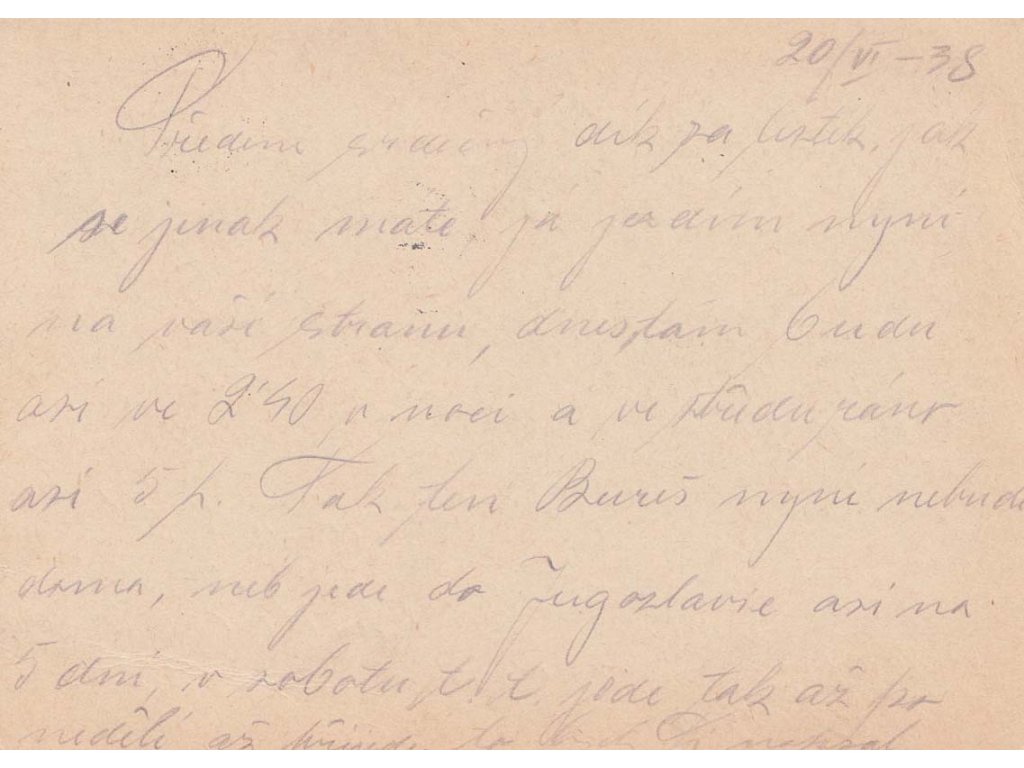 20/VI – 38
Předem srdečný dík za lístek, jak
se jinak máte já jezdím nyní
na vaší stranu, dnes tam budu
asi ve 2·40 v noci a ve středu ráno
asi 5 h. Tak ten Bureš nyní nebude
doma, neb jede do Jugoslavie asi na
5 dní, v sobotu t. t. jede tak až po
neděli až přijede to